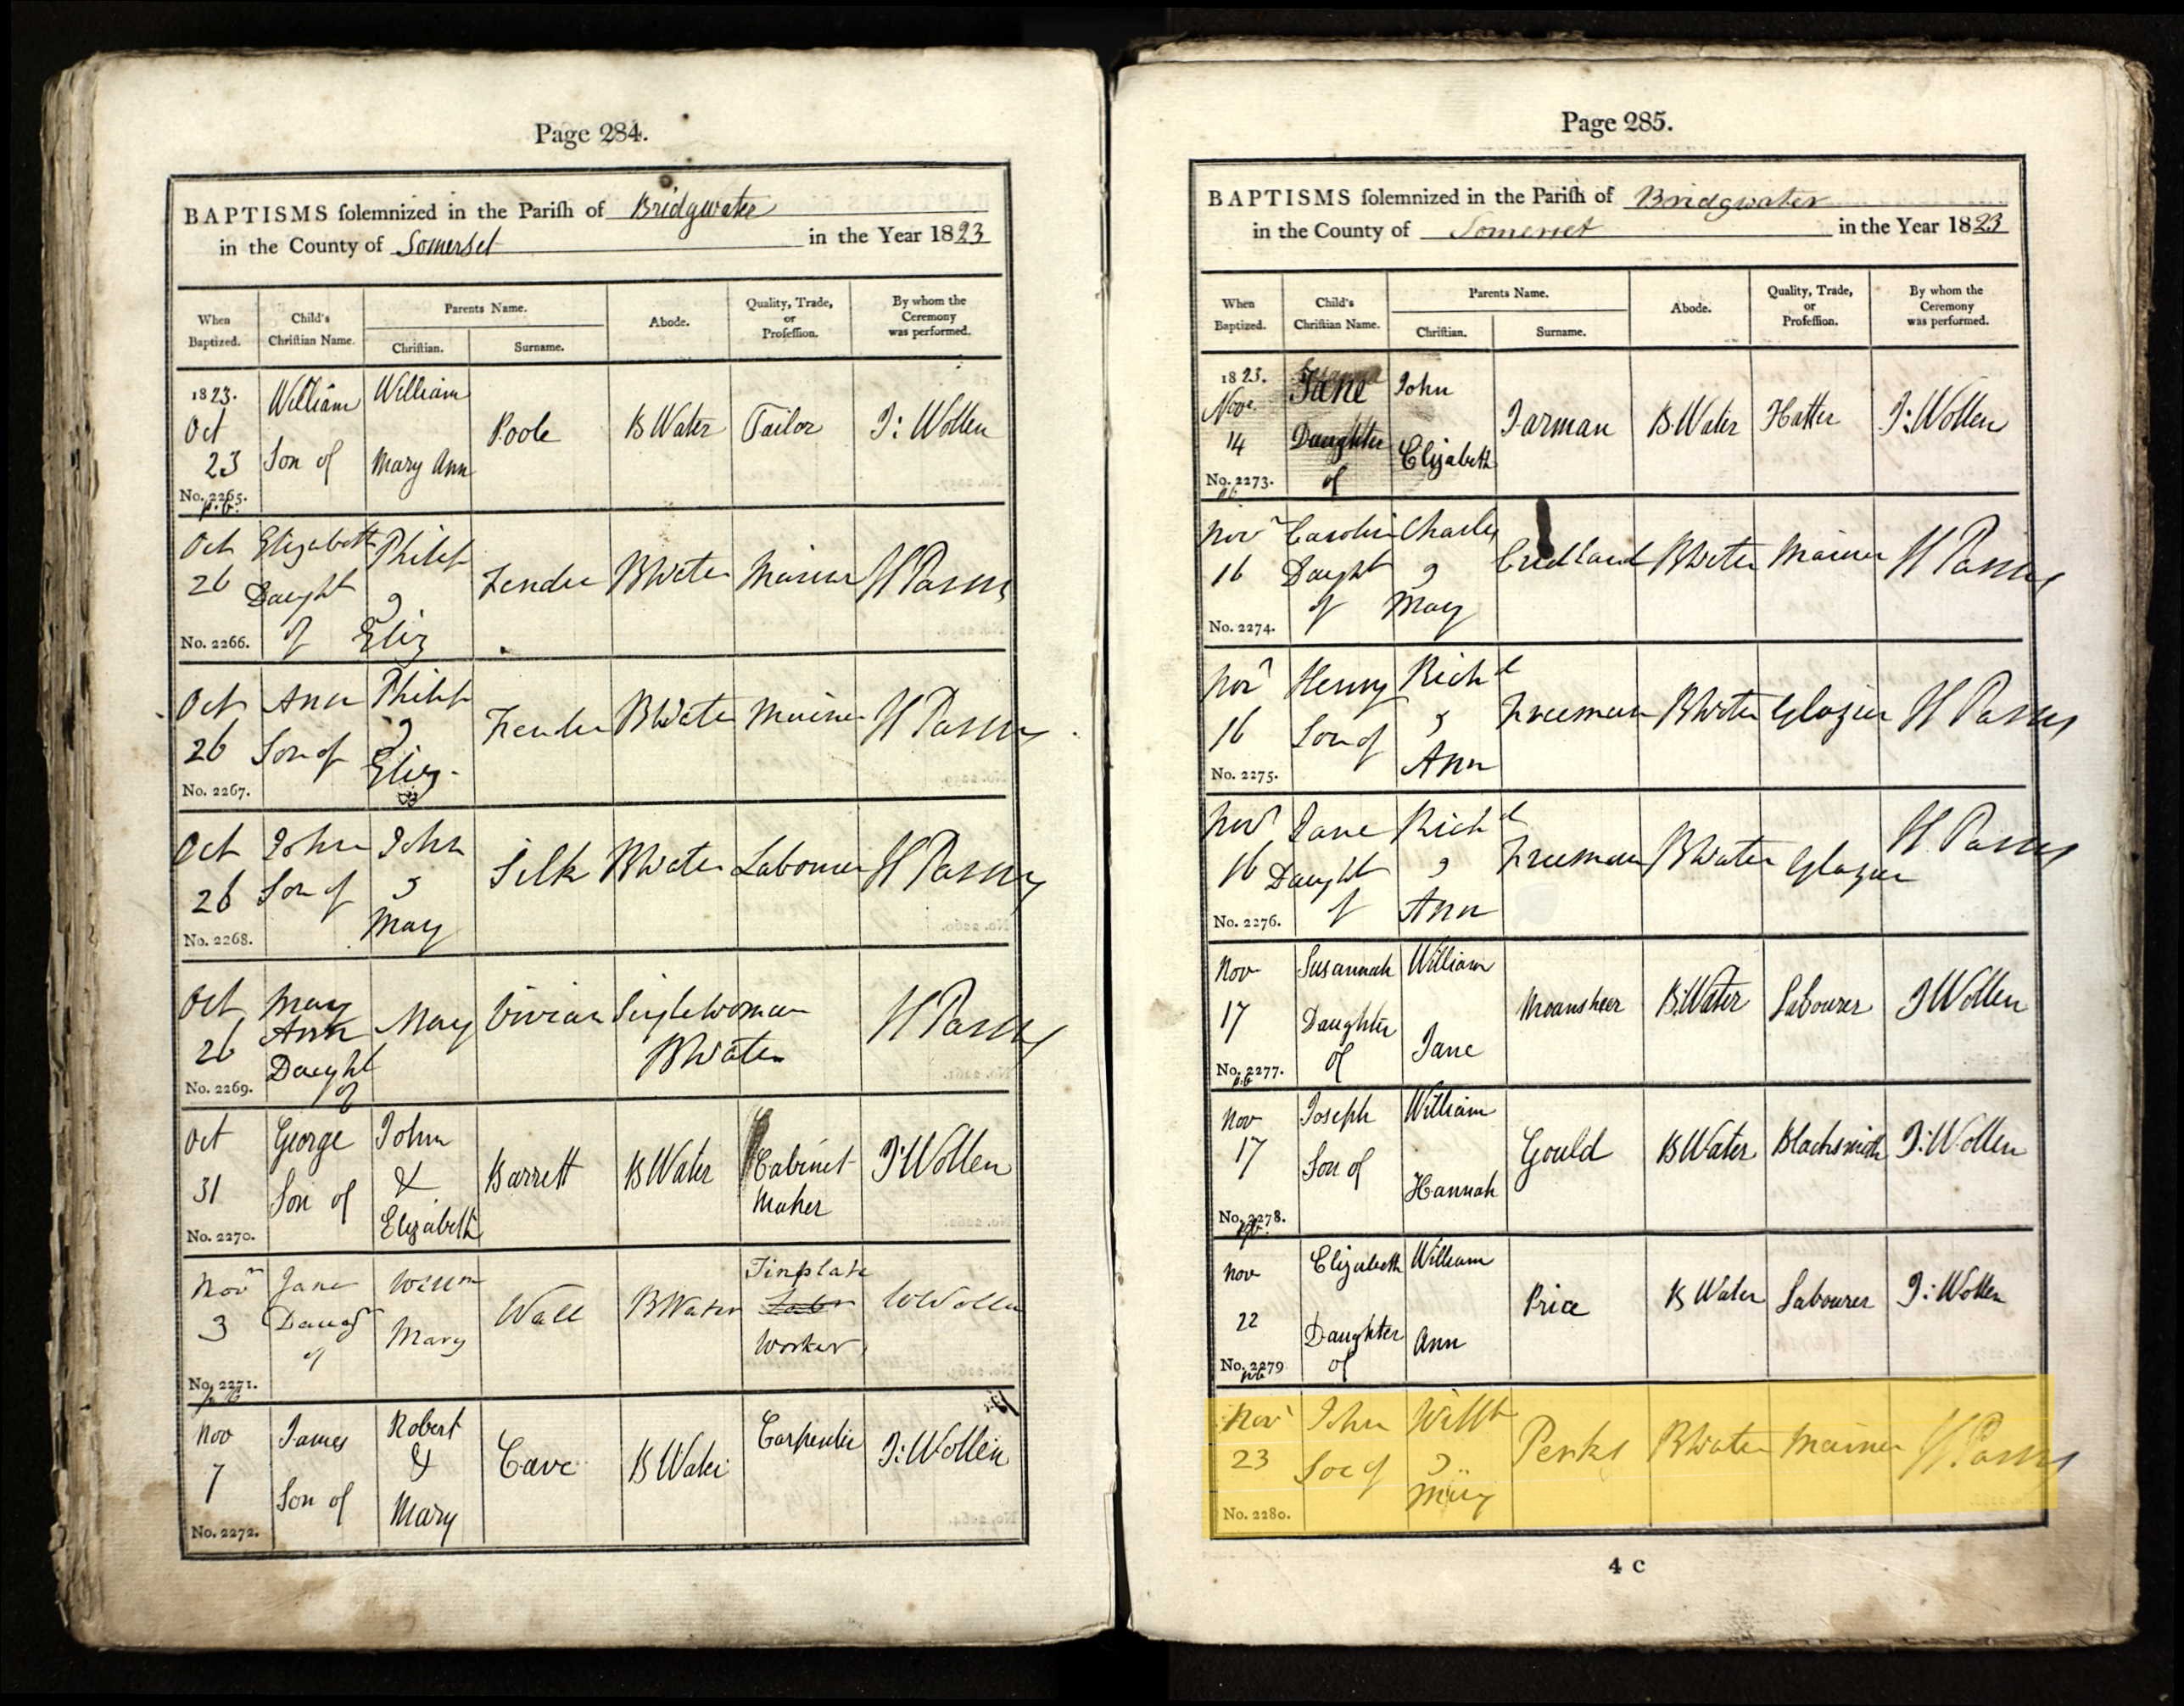 Page 284.
BAPTISMS solemnized in the Parish of Bridgwater
in the County of Somerset in the Year 1823
When Baptized.
Child's Christian Name.
Parents Name.
Christian.
Surname.
Abode.
Quality, Trade, or Profession.
By whom the Ceremony was performed.
1823. Oct 23
No. 2265.
William Son of
William Mary Ann
Poole
B Water
Tailor
J: Wollen
Oct 26
No. 2266.
Elizabeth Daught of
Philip & Eliz
B Water
Mariner
Oct 26
No. 2267.
Ann Son of
Philip & Eliz
B Water
Mariner
Oct 26
No. 2268.
John Son of
John & Mary
Silk
B Water
Labourer
Oct 26
No. 2269.
Mary Ann Daught of
Mary
Vivian
Singlewoman B Water
Oct 31
No. 2270.
George Son of
John & Elizabeth
Barrett
B Water
Cabinet Maker
J: Wollen
Nov 3
No. 2271.
Jane Daugr of
Willm Mary
Wall
B Water
Tinplate Worker
Nov 7
No. 2272.
James Son of
Robert & Mary
Cave
B Water
Carpenter
J: Wollen
Page 285.
BAPTISMS solemnized in the Parish of Bridgwater
in the County of Somerset in the Year 1823
When Baptized.
Child's Christian Name.
Parents Name.
Christian.
Surname.
Abode.
Quality, Trade, or Profession.
By whom the Ceremony was performed.
1823. Novr. 14
No. 2273.
Jane Daughter of
John Elizabeth
Jarman
B Water
Hatter
J: Wollen
Novr 16
No. 2274.
Carolin Daught of
Charles & Mary
Credland
B Water
Mariner
Novr 16
No. 2275.
Henry Son of
Richd & Ann
Freeman
B Water
Glazier
Novr 16
No. 2276.
Jane Daught of
Richd & Ann
Freeman
B Water
Glazier
Nov 17
No. 2277.
Susannah Daughter of
William Jane
B Water
Labourer
J Wollen
Nov 17
No. 2278.
Joseph Son of
William Hannah
Gould
B Water
Blacksmith
J: Wollen
Nov 22
No. 2279
Elizabeth Daughter of
William Ann
Price
B Water
Labourer
J: Wollen
Novr 23
No. 2280.
John Son of
Willm & Mary
Perks
B Water
Mariner
4 C